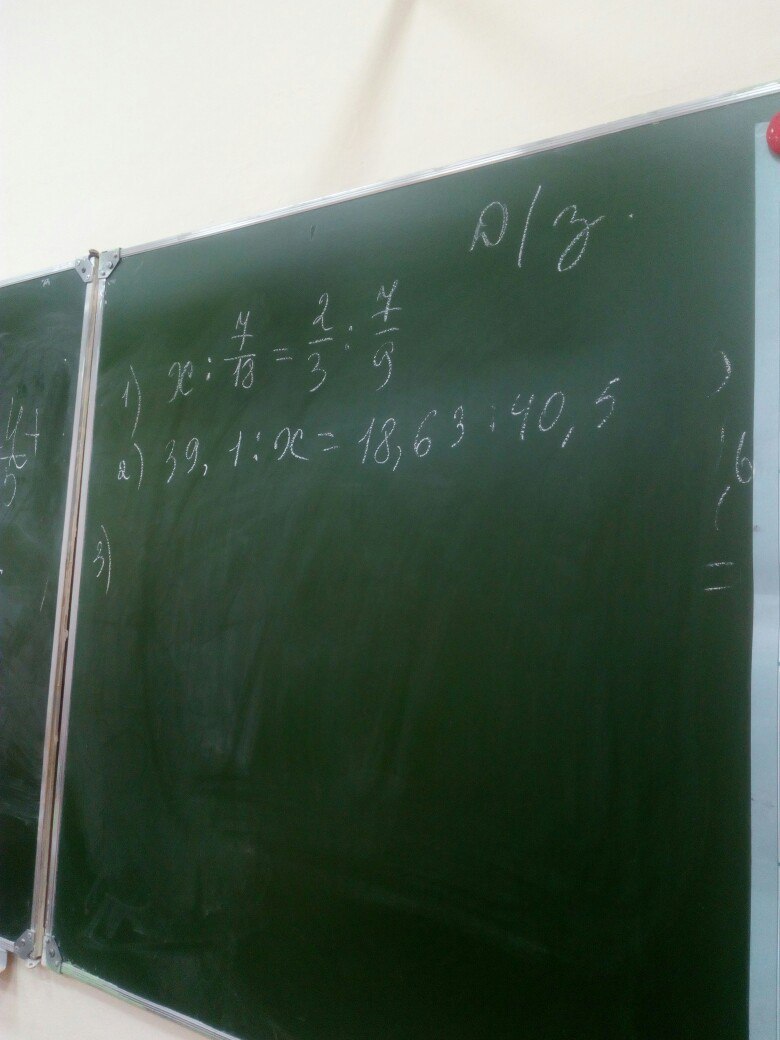 Д/з.
1) x : 7/18 = 2/3 : 7/9
2) 39,1 : x = 18,63 : 40,5
3)
)
6
(
=